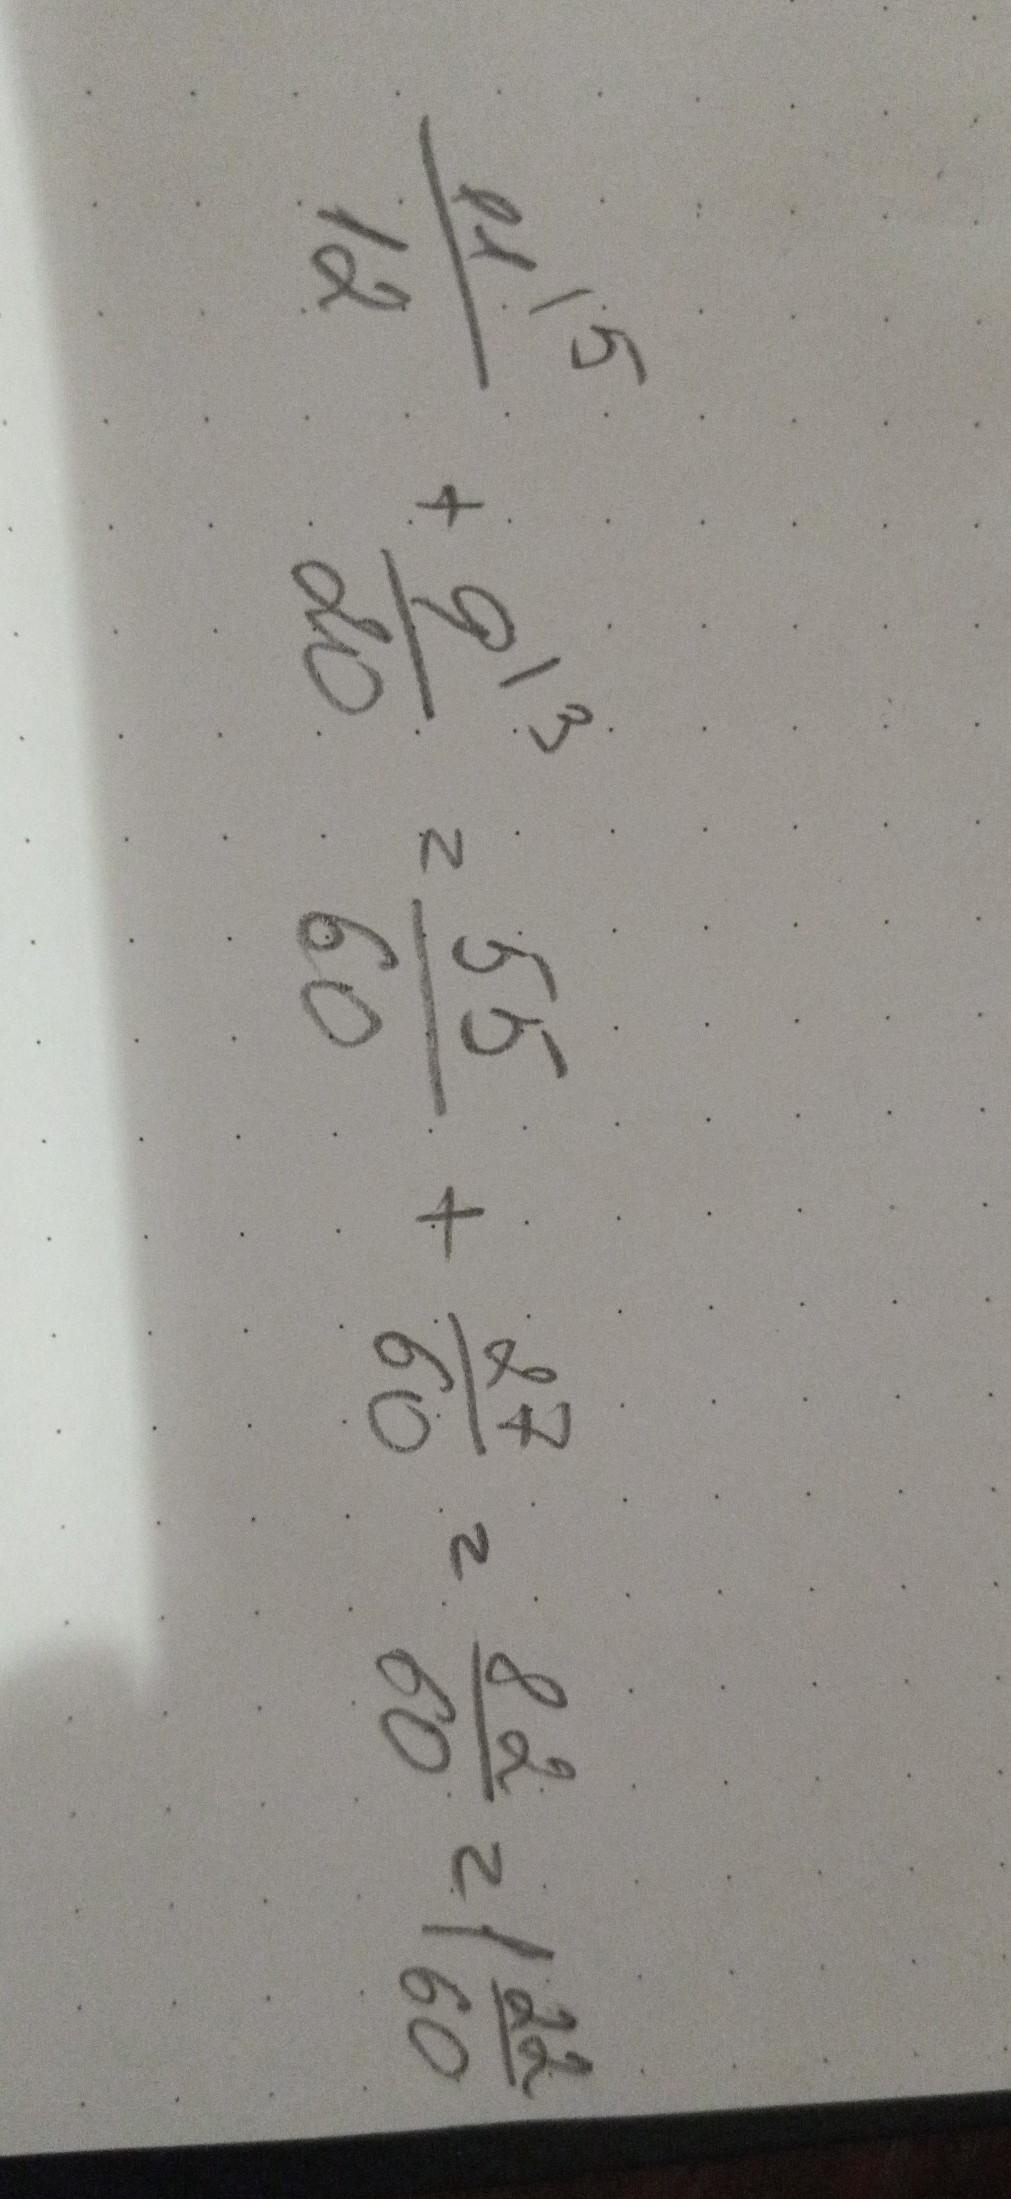 11/12 ⁽⁵ + 9/20 ⁽³ = 55/60 + 27/60 = 82/60 = 1 22/60